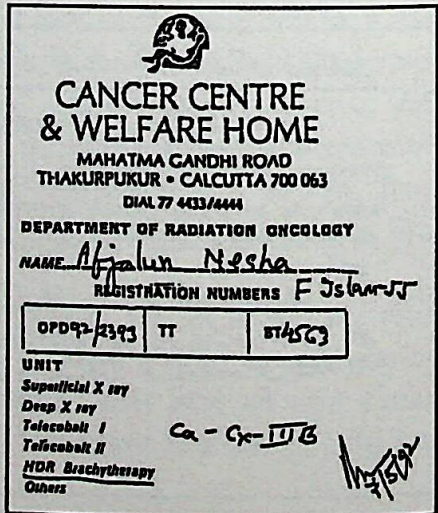 CANCER CENTRE
& WELFARE HOME
MAHATMA GANDHI ROAD
THAKURPUKUR • CALCUTTA 700 063
DIAL 77 4433/4444
DEPARTMENT OF RADIATION ONCOLOGY
NAME Afjalun Nesha
REGISTRATION NUMBERS F Islam-55
OPD92/2393 TT BT4563
UNIT
Superficial X ray
Deep X ray
Telecobalt I
Telecobalt II
Ca - Cx - III B
HDR Brachytherapy
Others
7/5/92